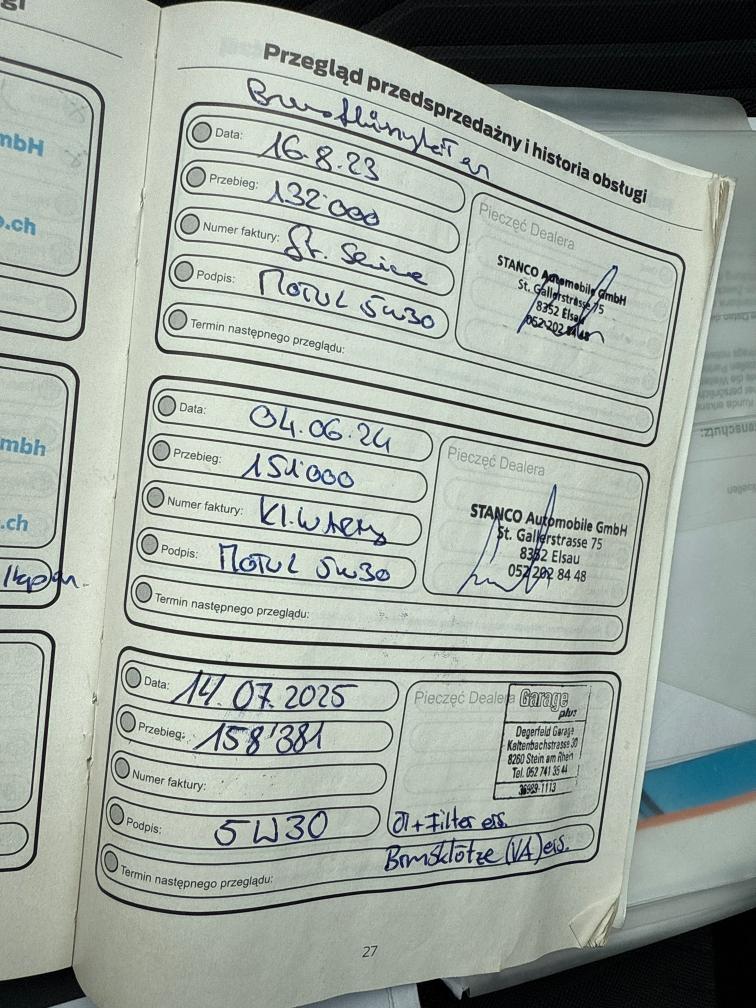 mbH
o.ch
mbh
.ch
Przegląd przedsprzedażny i historia obsługi
Data: 16.8.23
Przebieg: 132'000
Numer faktury: Gr. Service
Podpis: MOTUL 5W30
Termin następnego przeglądu:
Pieczęć Dealera
STANCO Automobile GmbH
St. Gallerstrasse 75
8352 Elsau
052 202 84 48
Data: 04.06.24
Przebieg: 151'000
Numer faktury: Kl.
Podpis: MOTUL 5W30
Termin następnego przeglądu:
Pieczęć Dealera
STANCO Automobile GmbH
St. Gallerstrasse 75
8352 Elsau
052 202 84 48
Data: 14.07.2025
Przebieg: 158'381
Numer faktury:
Podpis: 5W30
Termin następnego przeglądu:
Pieczęć Dealera
Garage
plus
Degerfeld Garage
Kaltenbachstrasse 30
8260 Stein am Rhein
Tel. 052 741 35 44
36989-1113
Öl+Filter ers.
Bremsklötze (VA) ers.
27